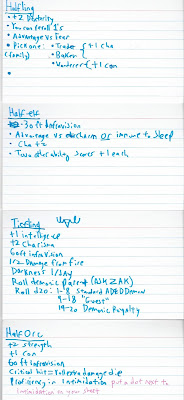 Halfling
• +2 Dexterity
• You can reroll 1's
• Advantage vs Fear
• Pick one: • Trader } +1 cha
(family) • Baker
• Wanderer { +1 con
•
Half elf
30ft Infravision
• Advantage vs charm or immune to Sleep
• Cha +2
• Two other ability scores +1 each
Tiefling
+1 intelligence
+2 Charisma
60ft infravision
1/2 Damage from fire
Darkness 1/day
Roll demonic parent (ASK ZAK)
Roll d20: 1-8 Standard AD&D Demon
9-18 "Guest"
19-20 Demonic Royalty
Half Orc
+2 strength
+1 con
60ft infravision
Critical hit = extra damage die
Proficiency in Intimidation put a dot next to
intimidation on your sheet